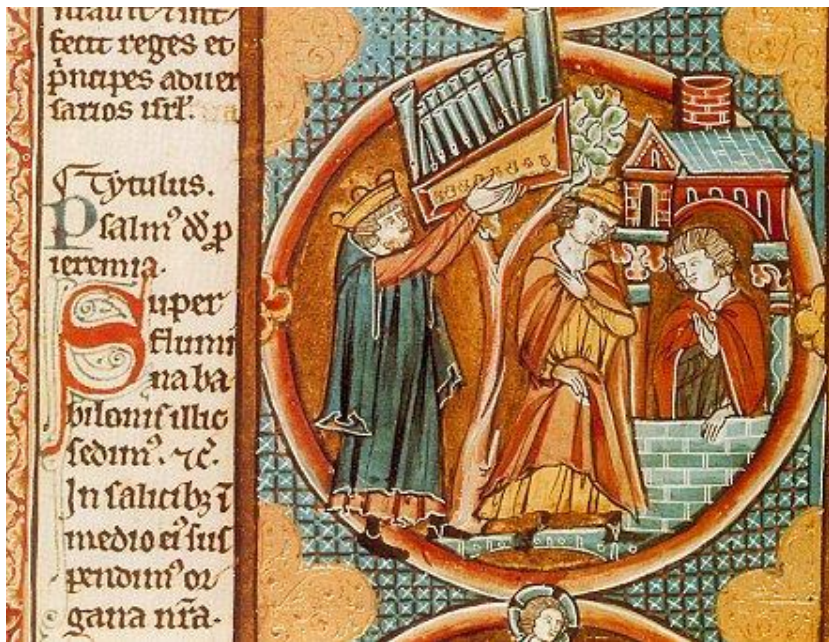 fecit reges et
p̄ncipes aduer
sarios isrl'.
Tytulus.
Psalmꝰ dd̄ p
ieremia.
Super
flumi
na ba
bilonis illic
sedimꝰ. ⁊c̄.
In salicibꝫ ī
medio eiꝰ sus
pendimꝰ or
gana nr̄a.